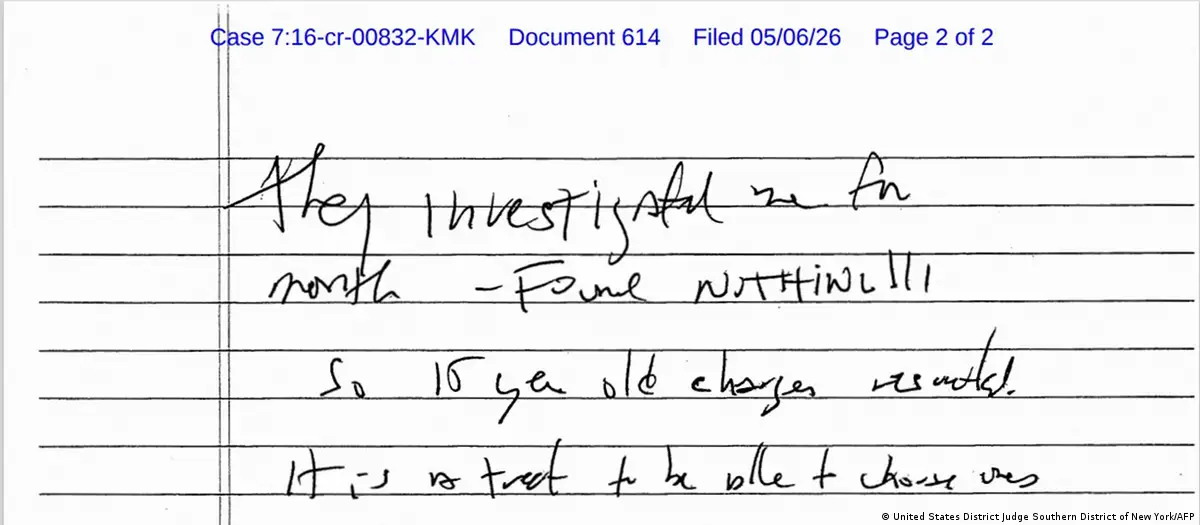 Case 7:16-cr-00832-KMK Document 614 Filed 05/06/26 Page 2 of 2
They investigated me for
month – Found NOTHING!!!
So 15 year old charges resulted.
It is a treat to be able to choose ones
© United States District Judge Southern District of New York/AFP